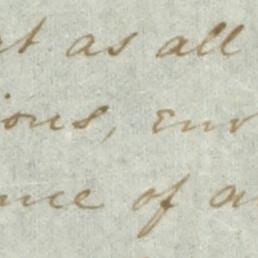 at as all
ious, env
nce of a